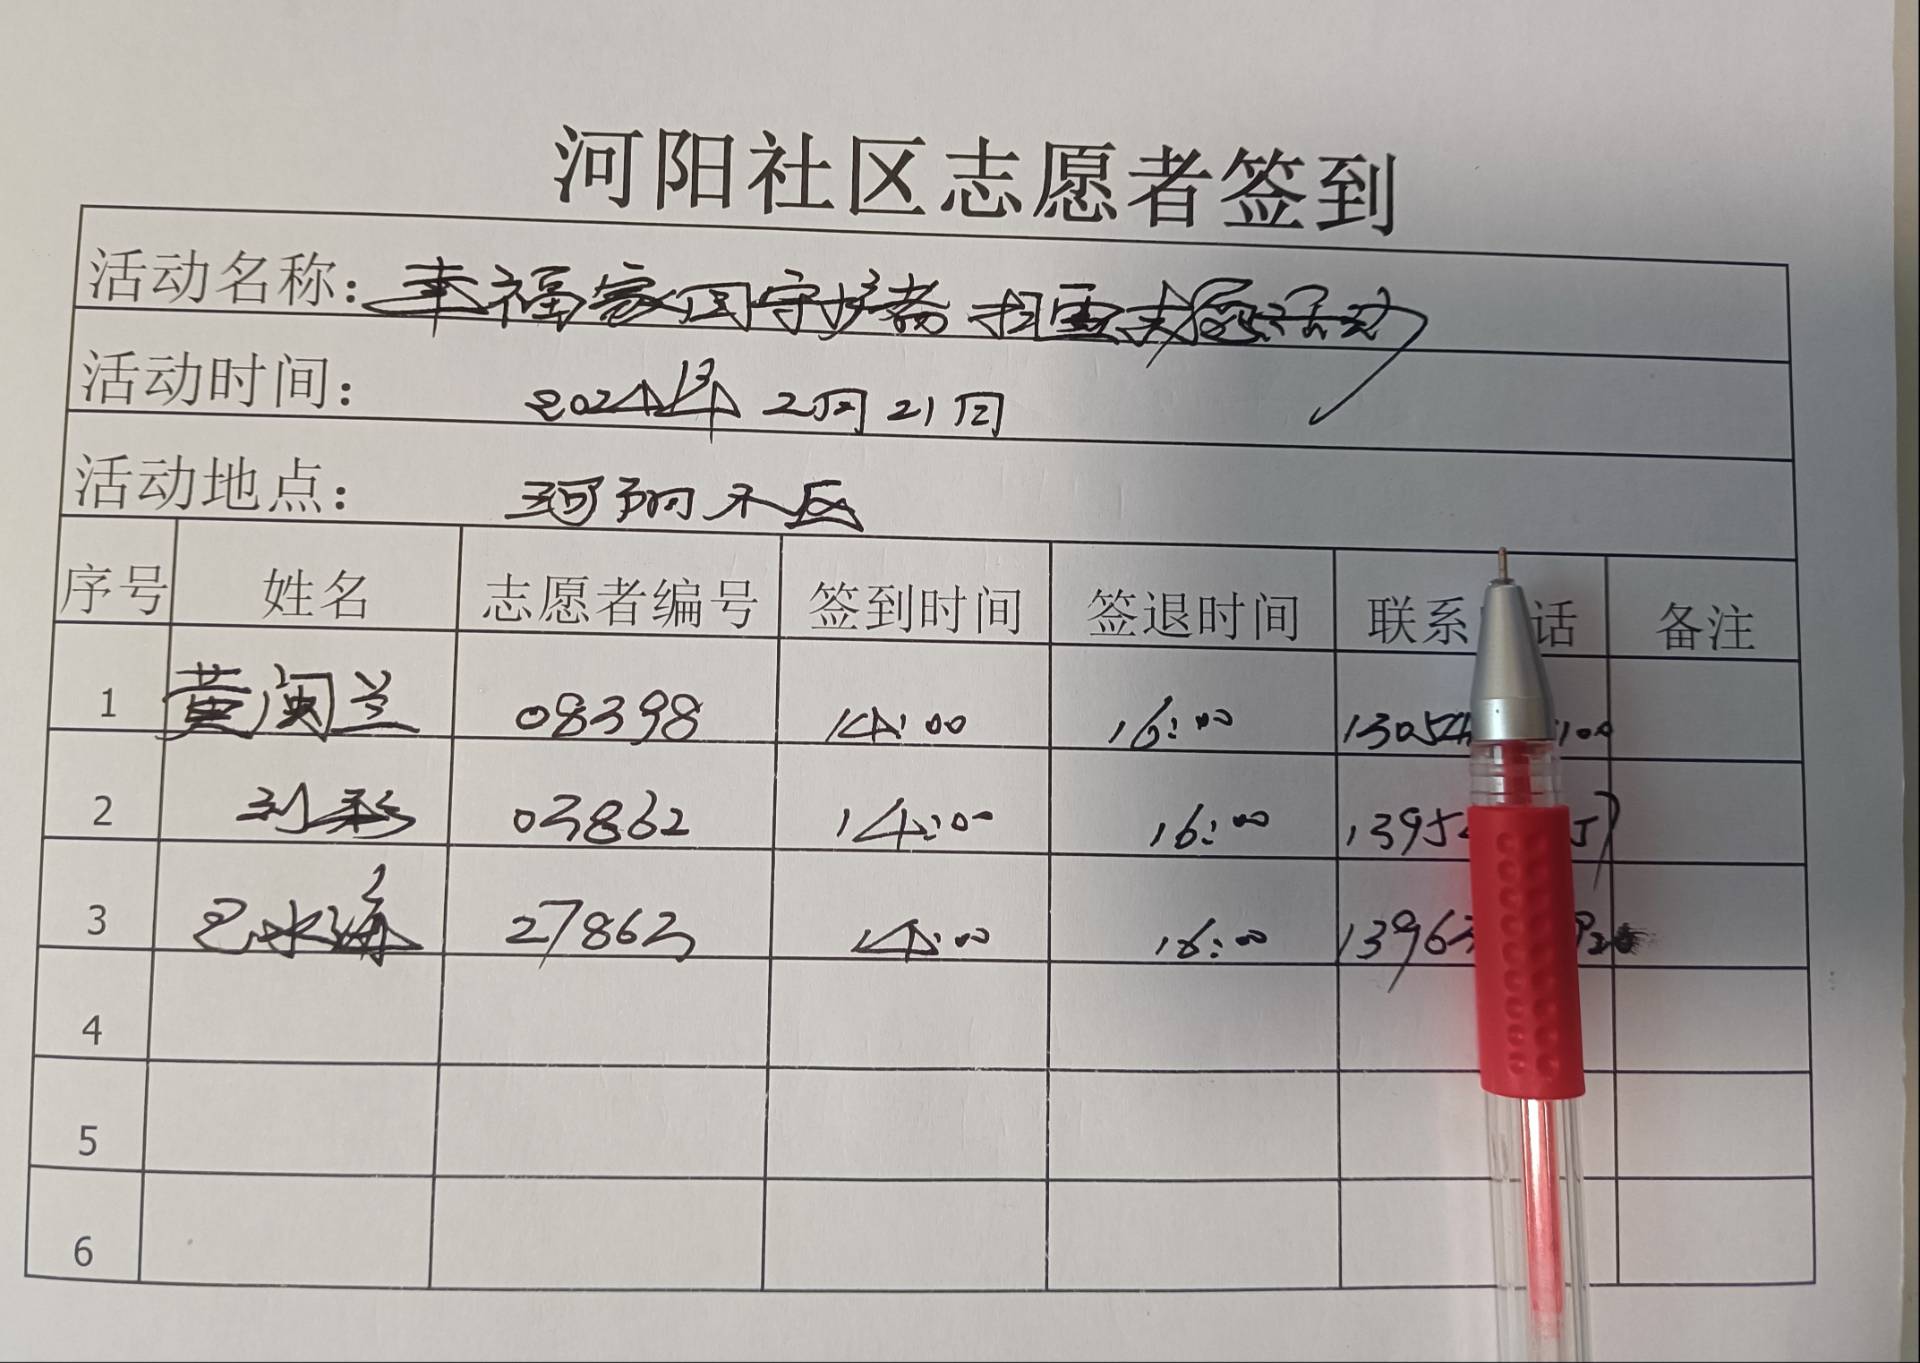 河阳社区志愿者签到
活动名称：幸福家园守护者 扫雪志愿活动
活动时间： 2024年 2月21日
活动地点： 河阳小区
序号 姓名 志愿者编号 签到时间 签退时间 联系 话 备注
1 黄闽兰 08398 14:00 16:00 13054 100
2 刘彩 03862 14:00 16:00 1395 57
3 水海 27863 14:00 16:00 1396
4
5
6